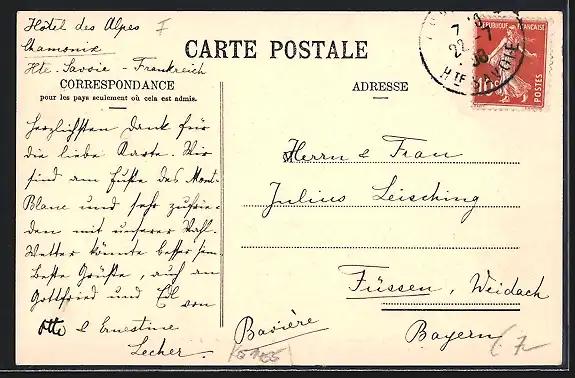 Hôtel des Alpes
Chamonix
Hte. Savoie - Frankreich
CARTE POSTALE
CORRESPONDANCE
pour les pays seulement où cela est admis.
ADRESSE
Herzlichsten Dank für
die liebe Karte. Wir
sind am Fuße des Mont-
Blanc und sehr zufrie-
den mit unserer Wahl.
Wetter könnte besser sein
Beste Grüße, auch an
Gottfried und Edl von
Otto & Ernestine
Lecher.
Herrn & Frau
Julius Leisching
Füssen, Weidach
Bayern
Bavière
RÉPUBLIQUE
POSTES
10
7
22-7
08
HTE SAVOIE